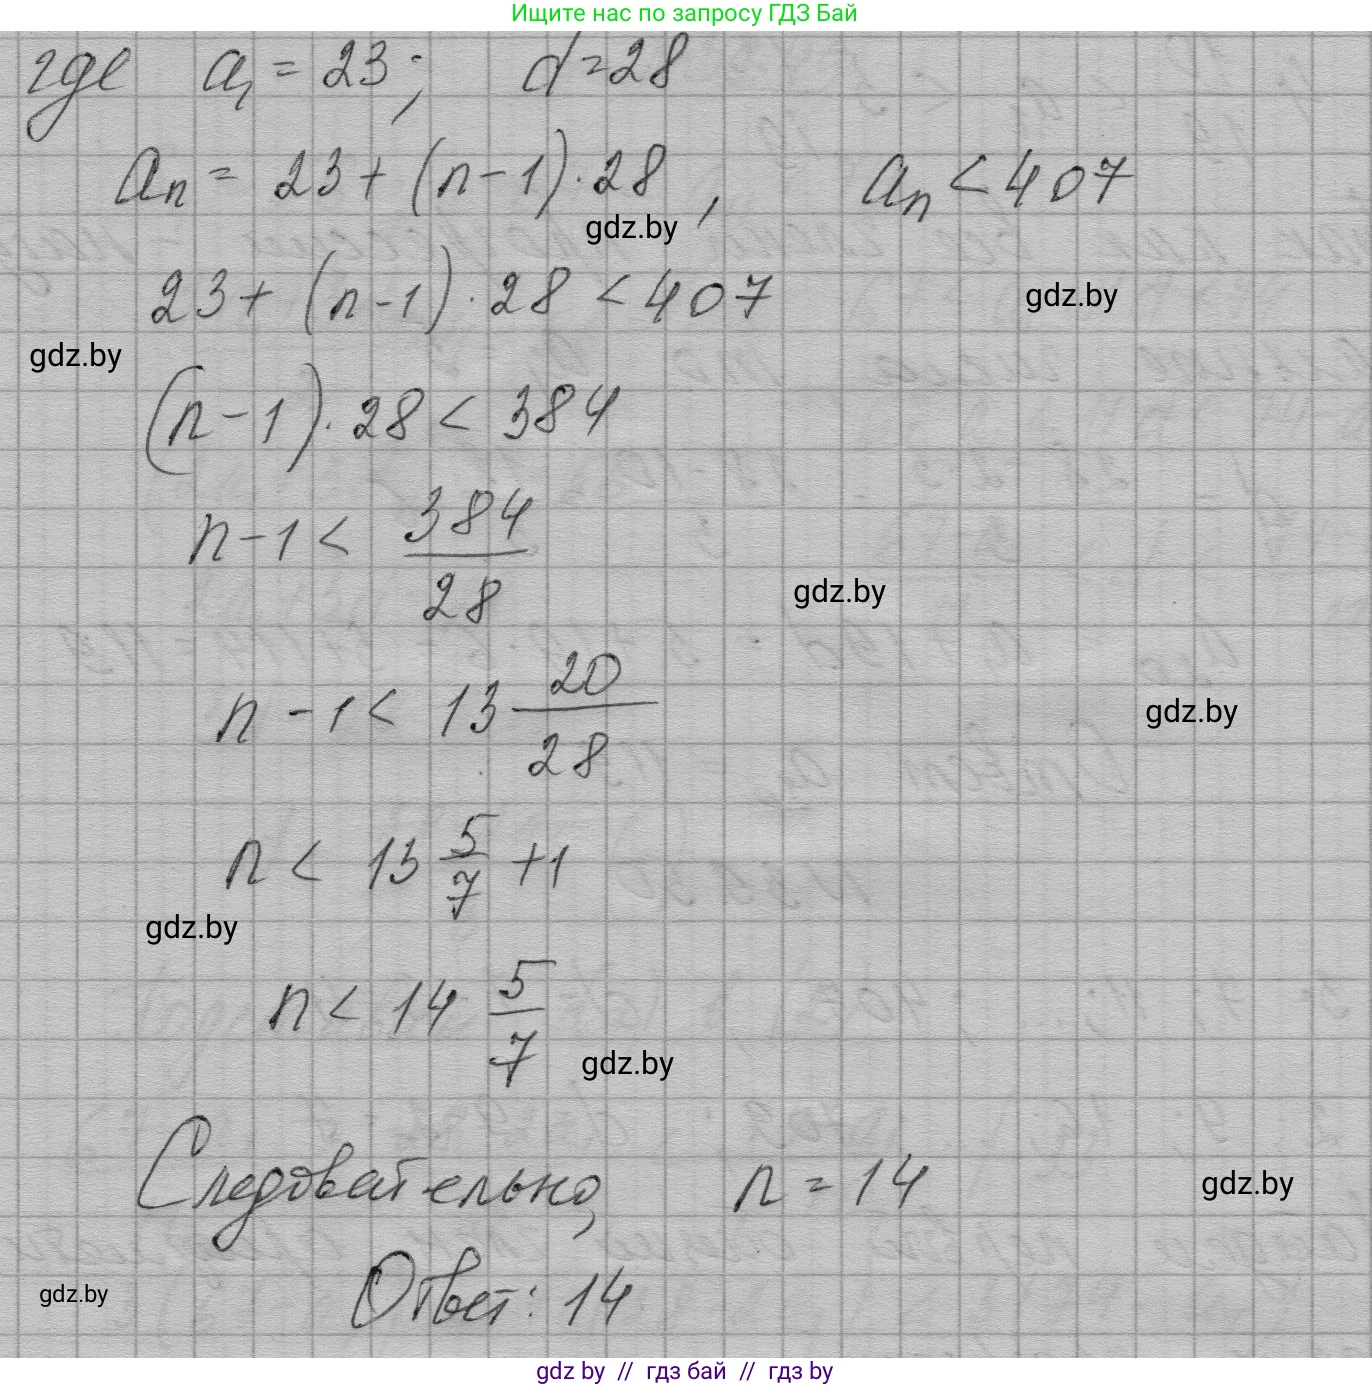 Ищите нас по запросу ГДЗ Бай
где a₁ = 23; d = 28
aₙ = 23 + (n - 1) · 28, aₙ < 407
gdz.by
23 + (n - 1) · 28 < 407
gdz.by
gdz.by
(n - 1) · 28 < 384
n - 1 < 384/28
gdz.by
n - 1 < 13 20/28
gdz.by
n < 13 5/7 + 1
gdz.by
n < 14 5/7
gdz.by
Следовательно, n = 14
gdz.by
Ответ: 14
gdz.by
gdz by // гдз бай // гдз by